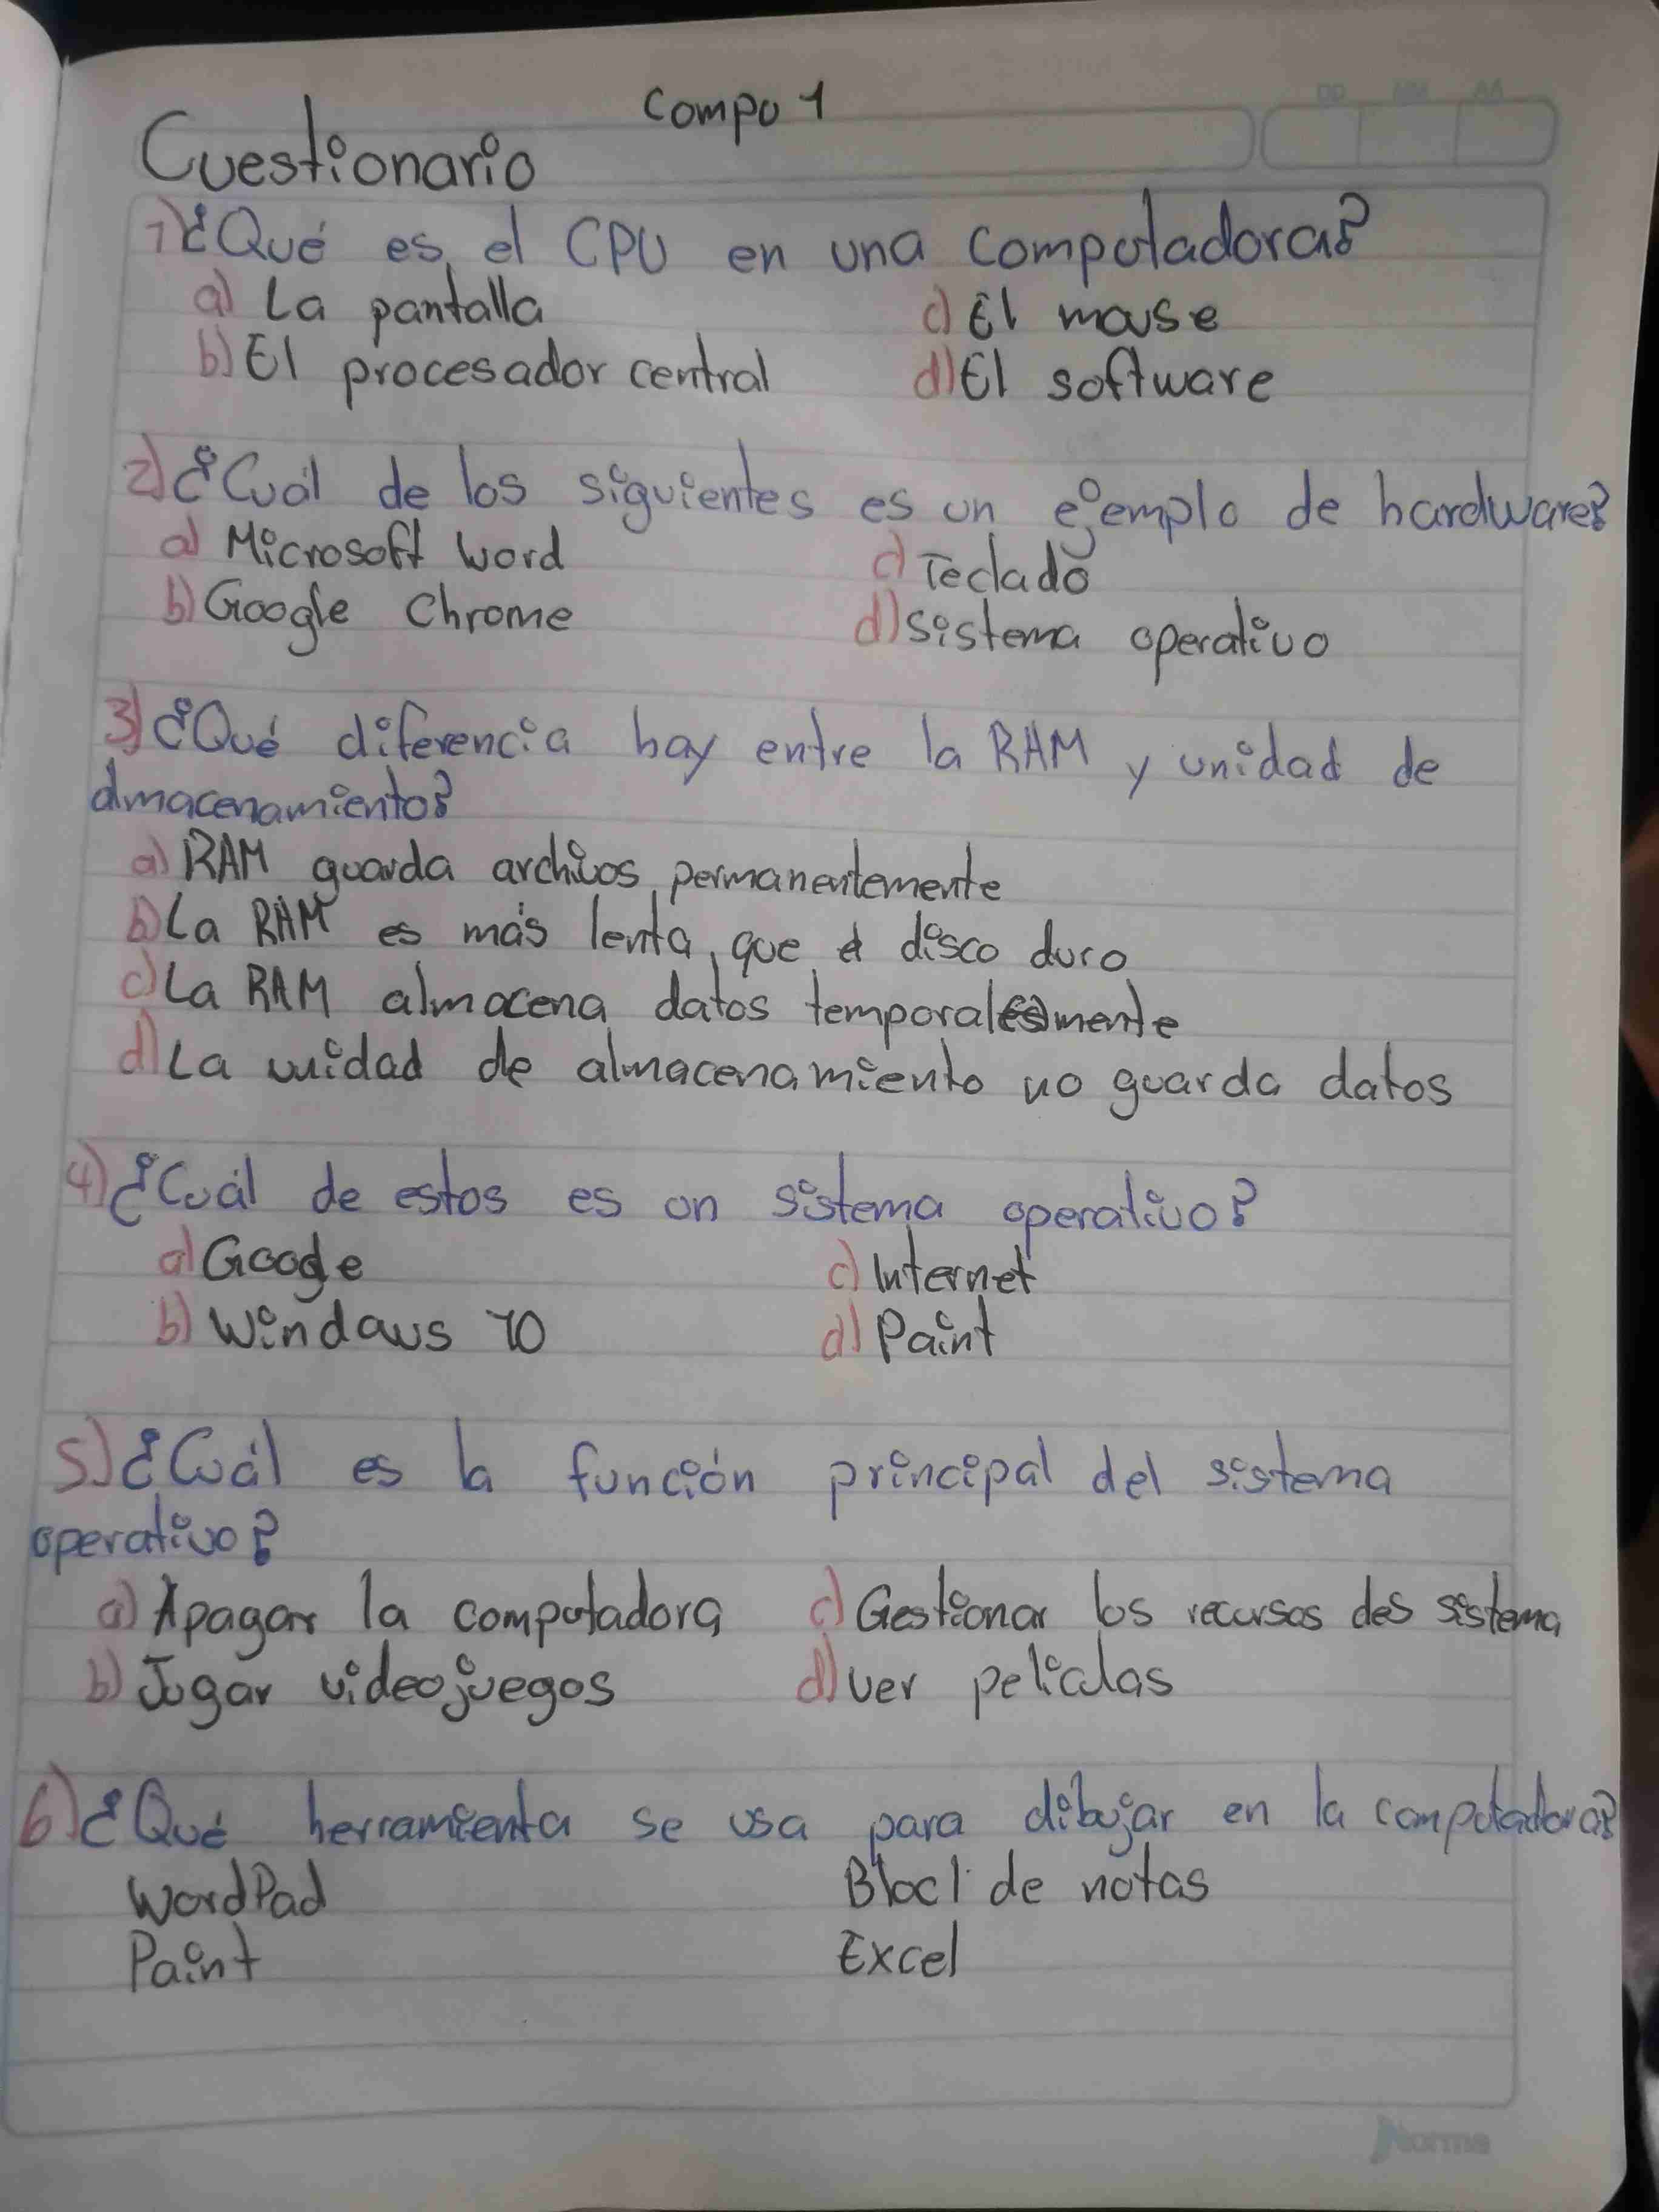 Compo 1
Cuestionario
1) ¿Qué es el CPU en una computadora?
a) La pantalla c) El mouse
b) El procesador central d) El software
2) ¿Cuál de los siguientes es un ejemplo de hardware?
a) Microsoft Word c) Teclado
b) Google Chrome d) Sistema operativo
3) ¿Qué diferencia hay entre la RAM y unidad de
almacenamiento?
a) RAM guarda archivos permanentemente
b) La RAM es más lenta que el disco duro
c) La RAM almacena datos temporalesmente
d) La unidad de almacenamiento no guarda datos
4) ¿Cuál de estos es un sistema operativo?
a) Google c) Internet
b) Windows 10 d) Paint
5) ¿Cuál es la función principal del sistema
operativo?
a) Apagar la computadora c) Gestionar los recursos des sistema
b) Jugar videojuegos d) ver peliculas
6) ¿Qué herramienta se usa para dibujar en la computadora?
WordPad Blocl de notas
Paint Excel
Norma
DD MM AA